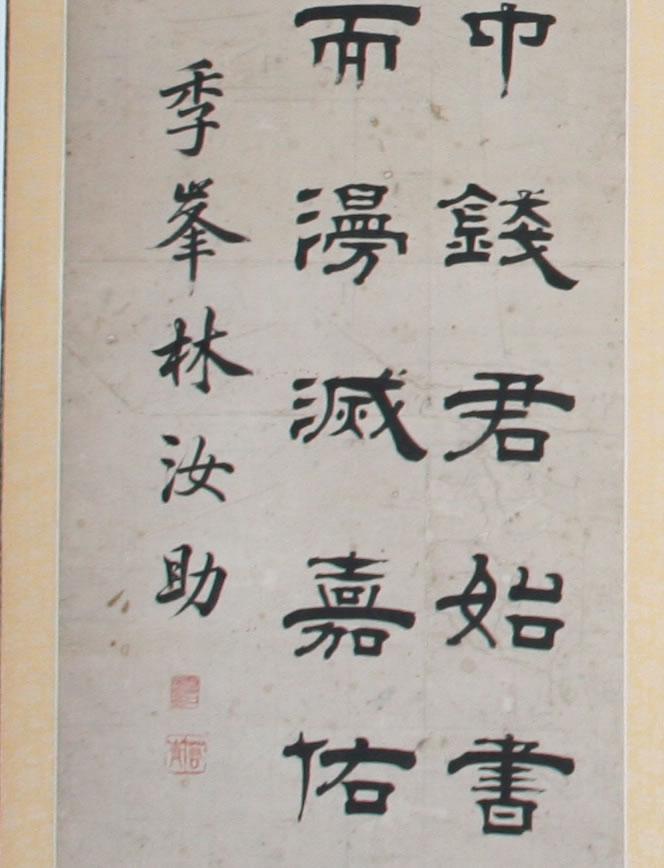 巾錢君始書
而漫滅嘉佑
季峯林汝助